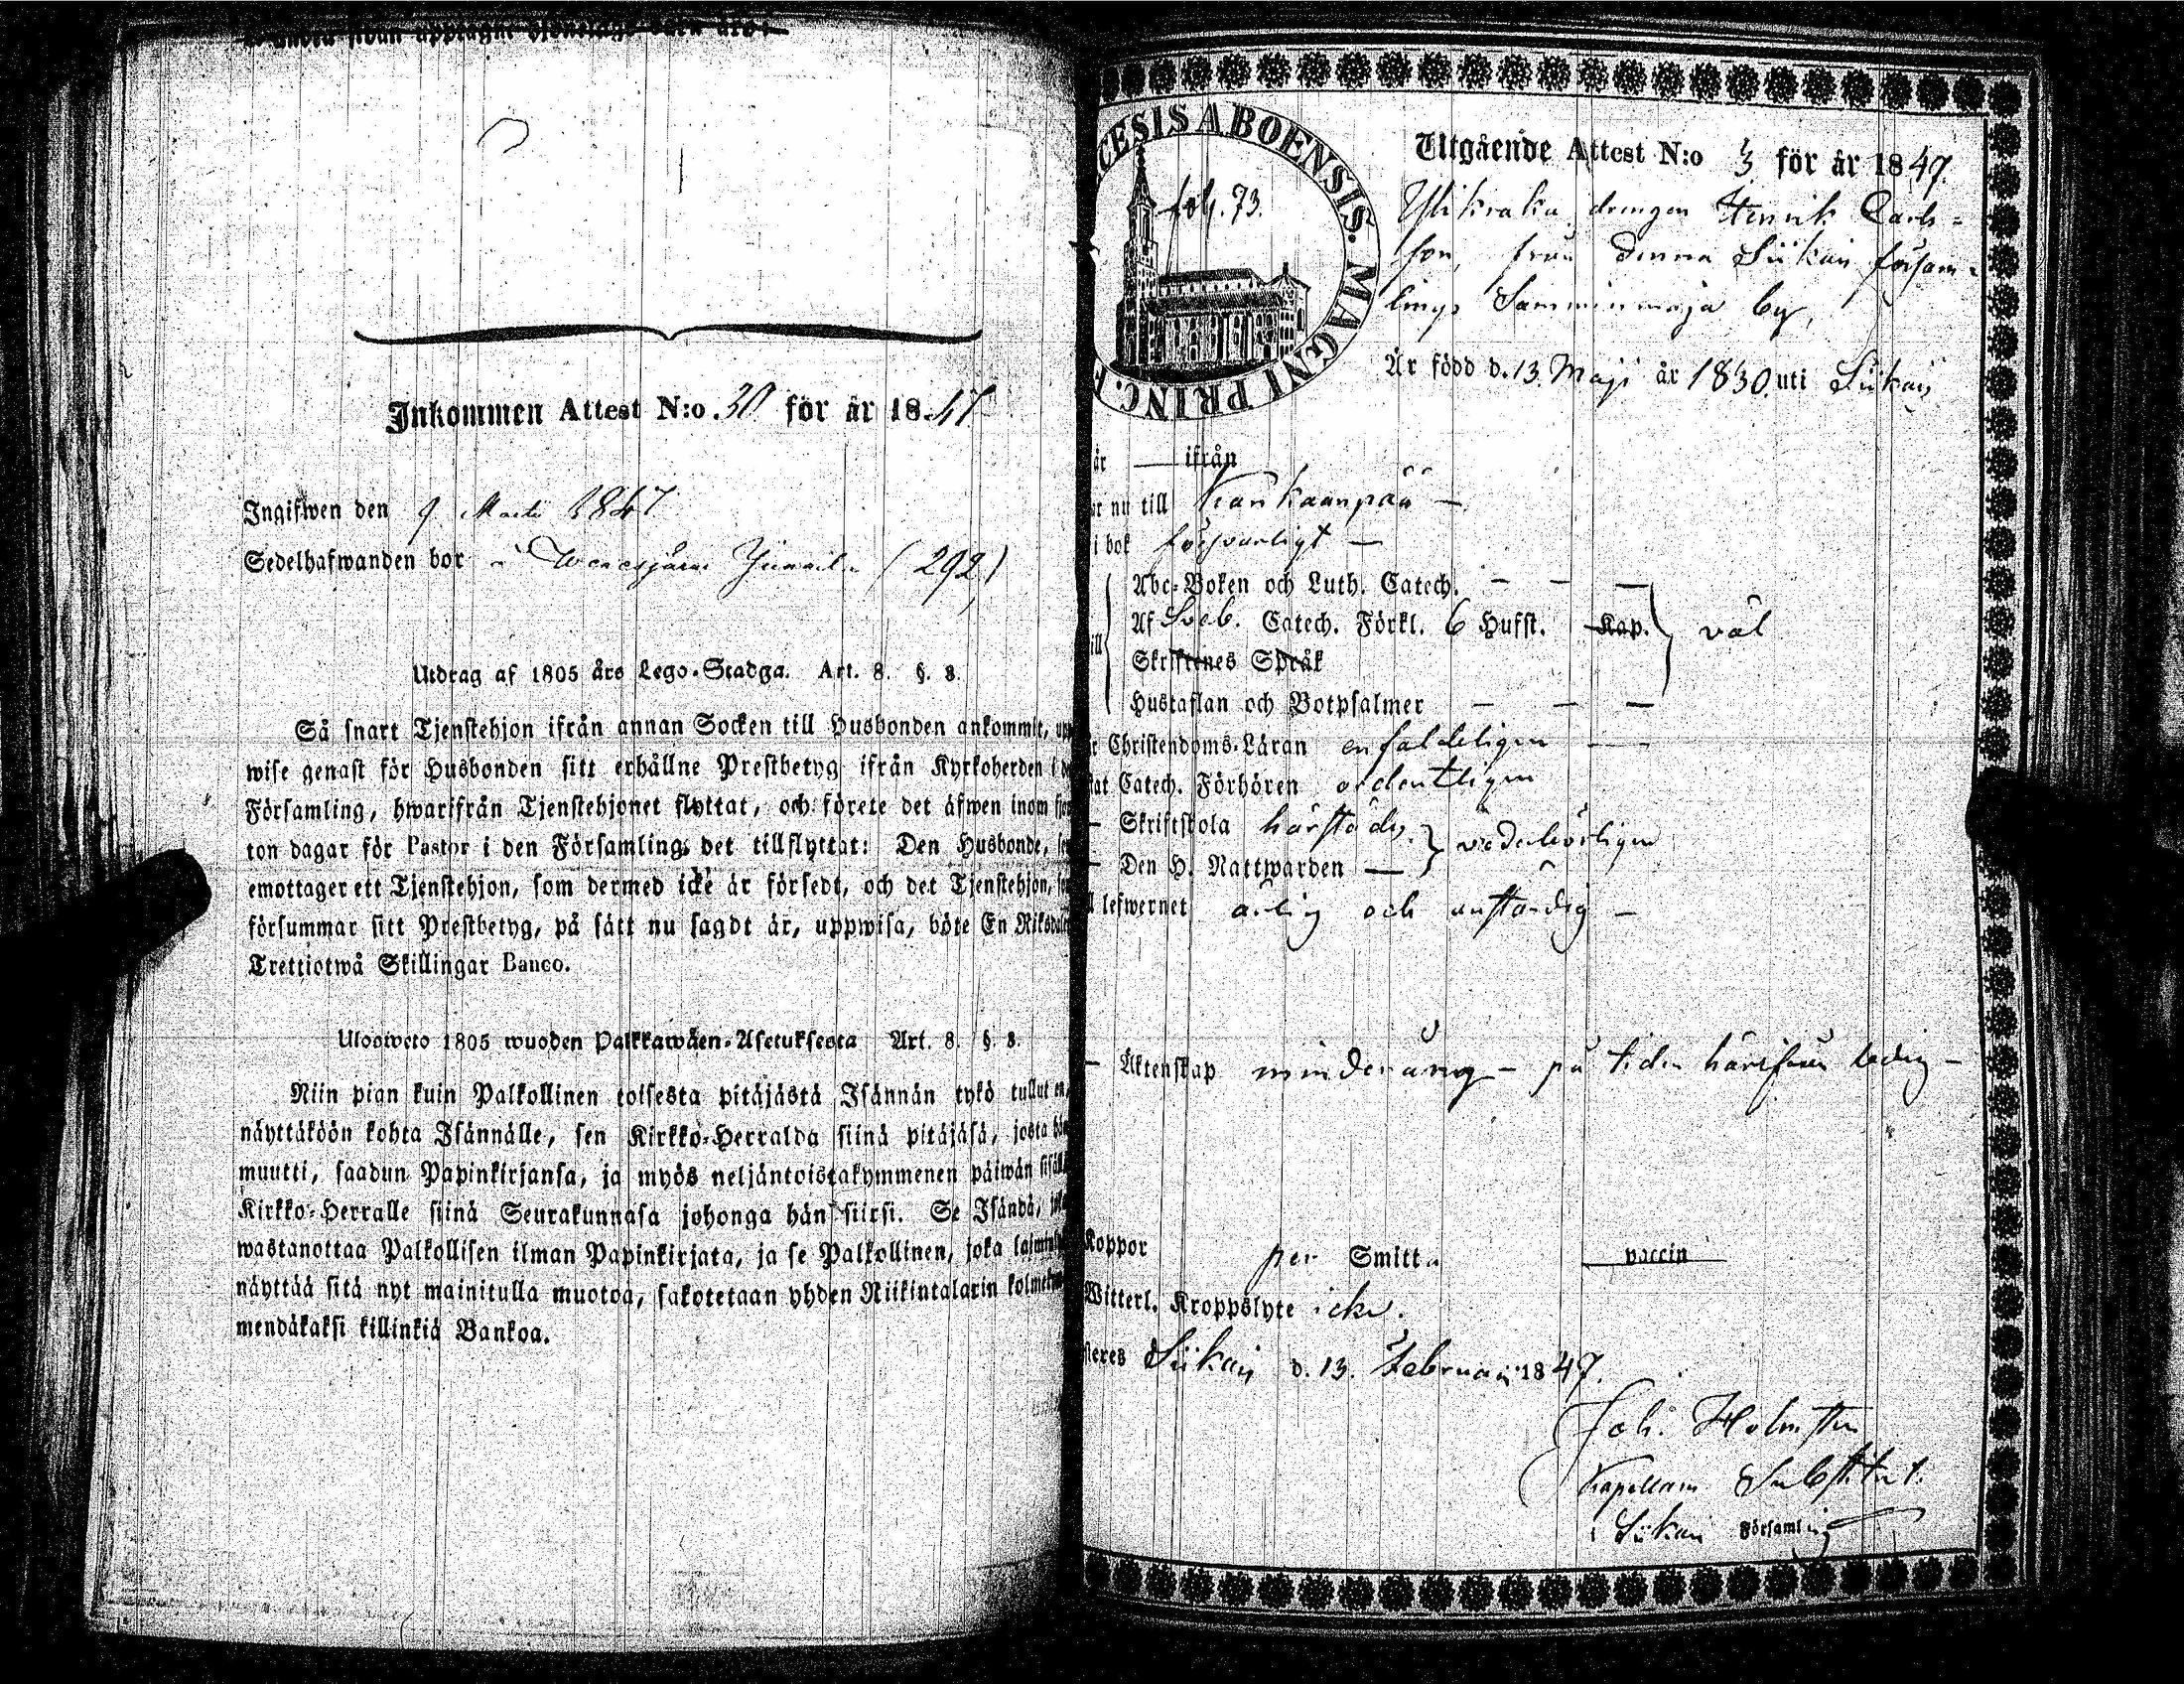 Inkommen Attest N:o 30 för år 1847
Ingifwen den 9 Martii 1847
Sedelhafwanden bor (292)
Utdrag af 1805 års Lego-Stadga. Art. 8. §. 8.
Så snart Tjenstehjon ifrån annan Socken till Husbonden ankommit,
wise genast för Husbonden sitt erhållne Prestbetyg ifrån Kyrkoherden i
Församling, hwarifrån Tjenstehjonet flyttat, och förete det äfwen inom
ton dagar för Pastor i den Församling, det tillflyttat: Den Husbonde,
emottager ett Tjenstehjon, som dermed icke är försedt, och det Tjenstehjon,
försummar sitt Prestbetyg, på sätt nu sagdt är, uppwisa, böte En
Trettiotwå Skillingar Banco.
Ulosweto 1805 wuoden Palkkawäen-Asetuksesta Art. 8. §. 8.
Niin pian kuin Palkollinen toisesta pitäjästä Isännän tykö tullut on,
näyttäköön kohta Isännälle, sen Kirkko-Herralda siinä pitäjäsä, josta
muutti, saadun Papinkirjansa, ja myös neljäntoistakymmenen päiwän
Kirkko-Herralle siinä Seurakunnasa johonga hän siirsi. Se Isändä,
wastanottaa Palkollisen ilman Papinkirjata, ja se Palkollinen, joka
näyttää sitä nyt mainitulla muotoa, sakotetaan yhden Riikintalarin
mendäkaksi killinkiä Bankoa.
CESIS ABOENSIS. MAGNI PRINC. F
fol. 73.
Utgående Attest N:o 3 för år 1847.
drengen Henrik Carls=
son, från denna Siikais försam=
lings Samminmaja by,
Är född d. 13 Maji år 1830 uti Siikais
år — ifrån
nu till Kankaanpää —
i bok försvarligt —
Abc-Boken och Luth. Catech. — — —
Af Sveb. Catech. Förkl. 6 Hufst. Kap. väl
Skriftenes Språk
Hustaflan och Botpsalmer — — —
Christendoms-Läran enfaldeligen —
Catech. Förhören ordentligen
— Skriftskola härstädes vederbörligen
— Den H. Nattwarden —
lefwernet ärlig och anständig —
— Äktenskap minderårig — på tiden härifrån ledig —
Koppor per Smitta vaccin
Witterl. Kroppslyte icke.
Siikais d. 13. Februarii 1847.
Joh. Holmsten
Kapellans Substitut.
i Siikais Församling